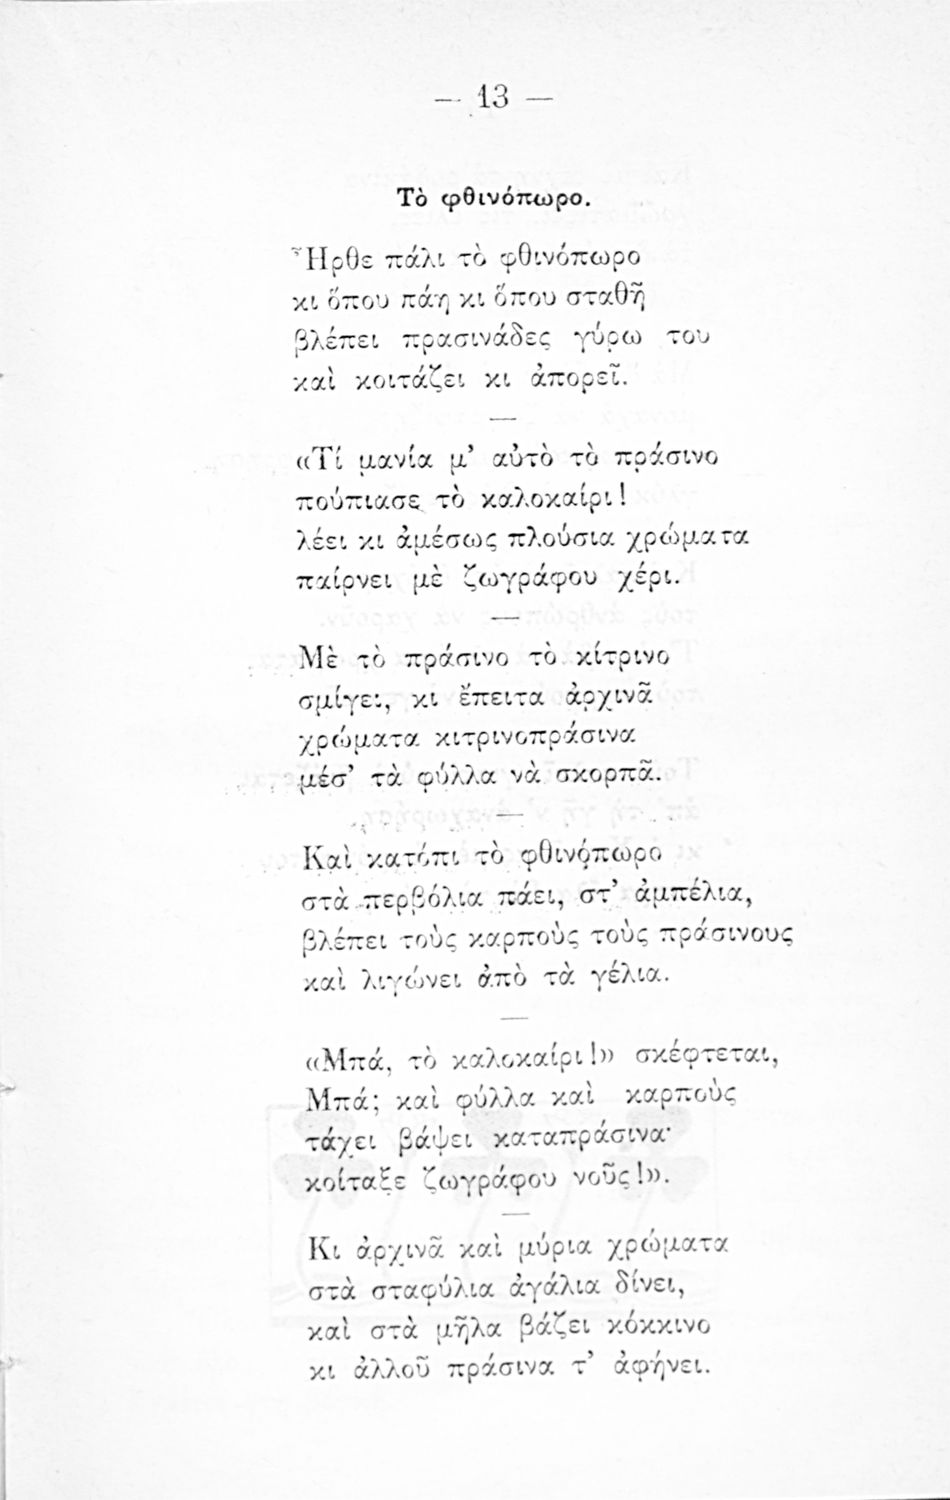 — 13 —
Τὸ φθινόπωρο.
Ἦρθε πάλι τὸ φθινόπωρο
κι ὅπου πάῃ κι ὅπου σταθῇ
βλέπει πρασινάδες γύρω του
καὶ κοιτάζει κι ἀπορεῖ.
—
«Τί μανία μ’ αὐτὸ τὸ πράσινο
πούπιασε τὸ καλοκαίρι!
λέει κι ἀμέσως πλούσια χρώματα
παίρνει μὲ ζωγράφου χέρι.
—
Μὲ τὸ πράσινο τὸ κίτρινο
σμίγει, κι ἔπειτα ἀρχινᾶ
χρώματα κιτρινοπράσινα
μέσ’ τὰ φύλλα νὰ σκορπᾶ.
—
Καὶ κατόπι τὸ φθινόπωρο
στὰ περβόλια πάει, στ’ ἀμπέλια,
βλέπει τοὺς καρποὺς τοὺς πράσινους
καὶ λιγώνει ἀπὸ τὰ γέλια.
—
«Μπά, τὸ καλοκαίρι!» σκέφτεται,
Μπά; καὶ φύλλα καὶ καρποὺς
τάχει βάψει καταπράσινα·
κοίταξε ζωγράφου νοῦς!».
—
Κι ἀρχινᾶ καὶ μύρια χρώματα
στὰ σταφύλια ἀγάλια δίνει,
καὶ στὰ μῆλα βάζει κόκκινο
κι ἀλλοῦ πράσινα τ’ ἀφήνει.